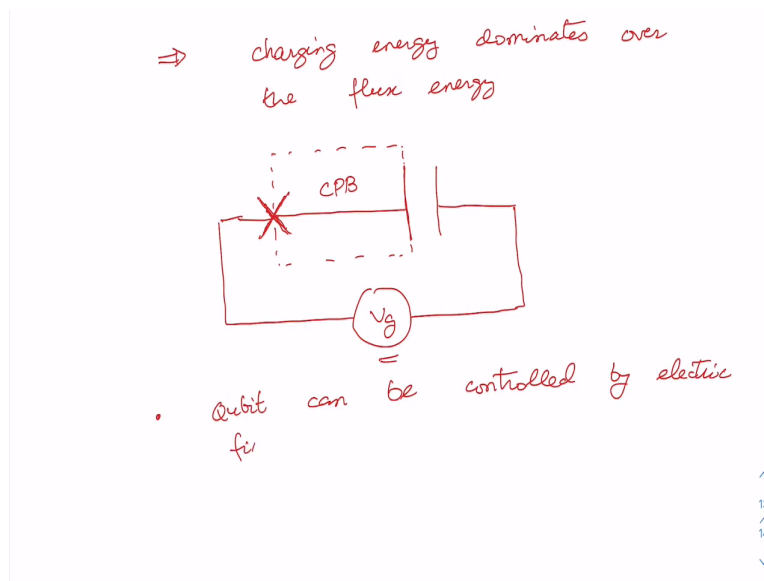 ⇒ charging energy dominates over
the flux energy
CPB
Vg
• Qubit can be controlled by electric
fi